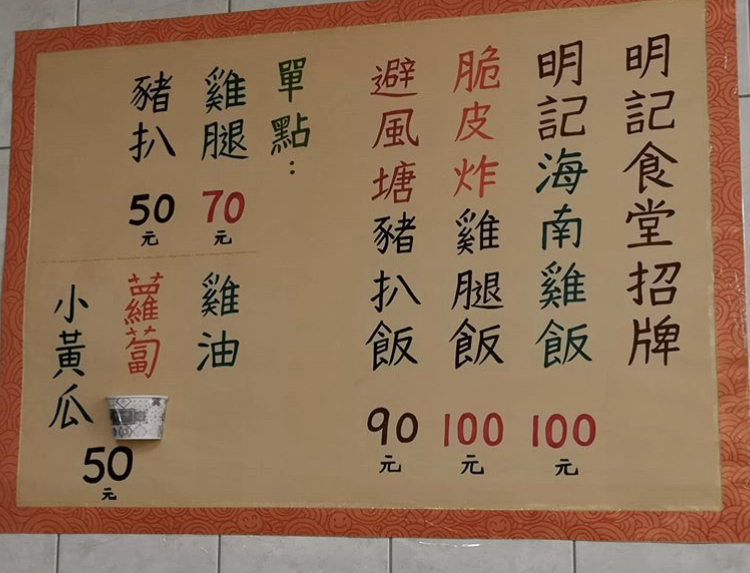 明記食堂招牌
明記海南雞飯
100元
脆皮炸雞腿飯
100元
避風塘豬扒飯
90元
單點：
雞腿
70元
豬扒
50元
雞油
蘿蔔
小黃瓜
50元